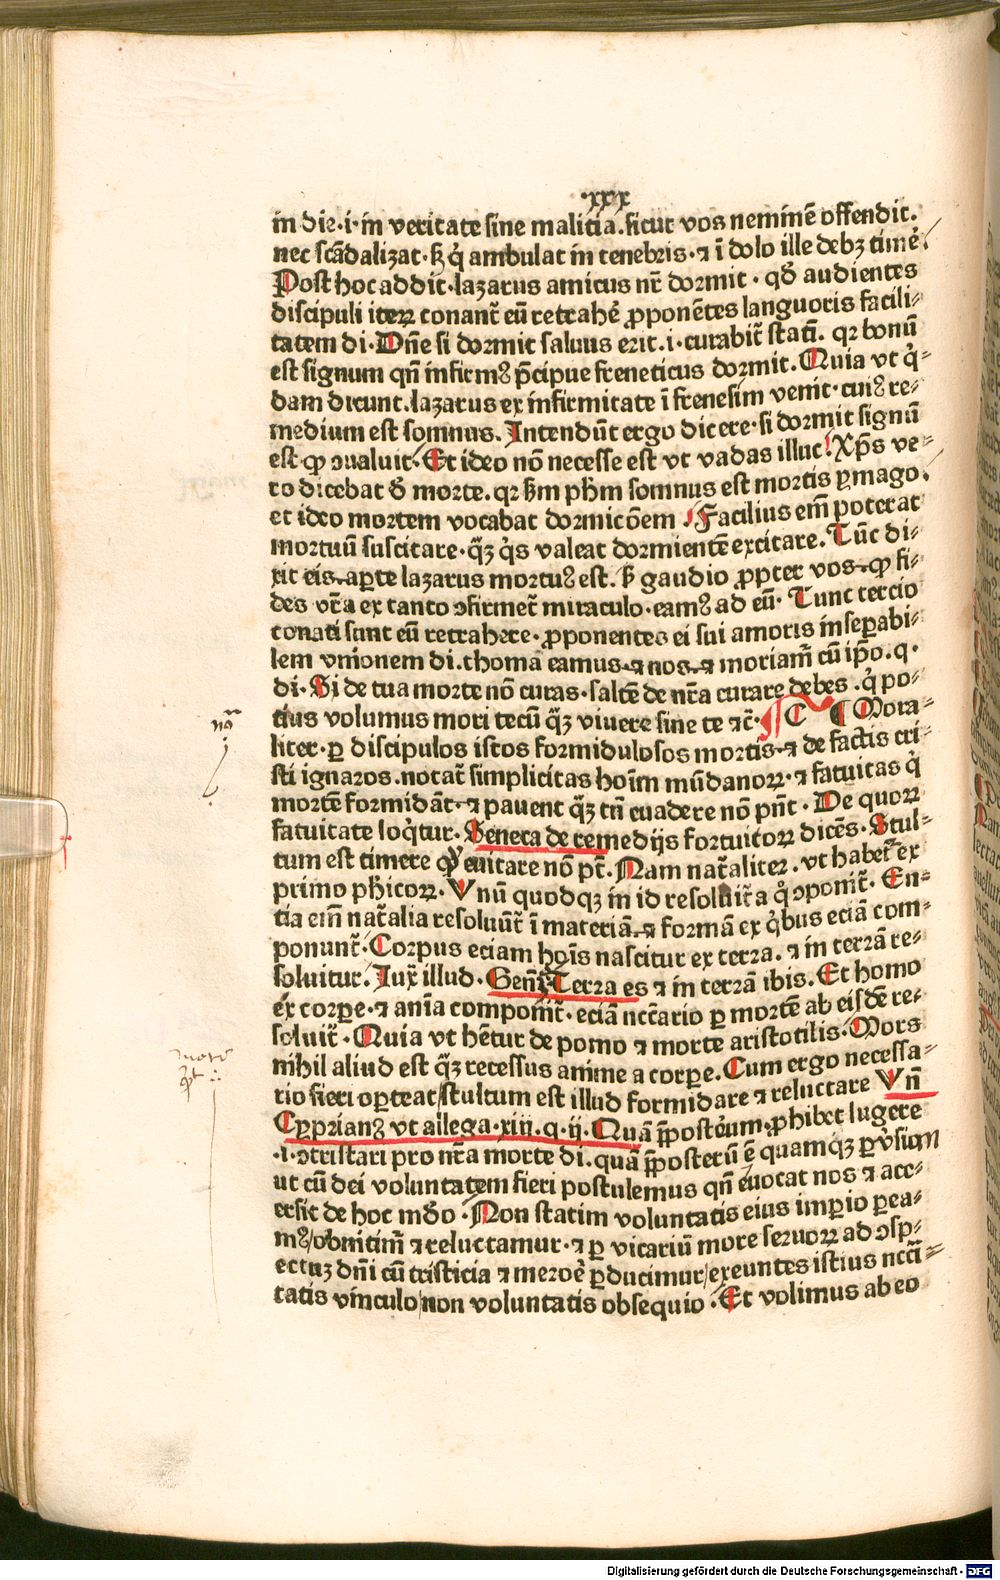 ·xxx
in die·i·in veritate sine malicia. sicut vos neminē offendit.
nec scādalizat·sꝫ q̇ ambulat in tenebris·⁊ ī dolo ille debꝫ timē.
Post hoc addit·lazarus amicus nr̄ dormit · qď audientes
discipuli iteꝝ conant̄ eū retrahē ꝓponētes languoris facili⸗
tatem di·Dn̄e si dormit saluus erit.i·curabit̄ statī. qꝛ bonū
est signum qn̄ infirmꝰ p̄cipue freneticus dormit. Quia vt q̇⸗
dam dicunt.lazarus ex infirmitate ī frenesim venit·cuiꝰ re⸗
medium est somnus. Intendūt ergo dicere·si dormit signū
est·ꝙ ↄualuit·Et ideo nō necesse est vt vadas illuc. Xp̄s ve⸗
ro dicebat ď morte. qꝛ ẜm ph̄m somnus est mortis ꝑmago.
et ideo mortem vocabat dormicōem . Facilius em̄ poterat
mortuū suscitare·q̄ꝫ q̇s valeat dormientē excitare. Tūc di⸗
xit eis aꝑte lazarus mortuꝰ est. sꝫ gaudio ꝓpter vos·ꝙ fi⸗
des vr̄a ex tanto ↄfirmet̄ miraculo·eamꝰ ad eū· Tunc tercio
conati sunt eū retrahere·ꝓponentes ei sui amoris inseꝑabi⸗
lem vnionem di.thoma eamus ⁊ nos ⁊ moriam̄ cū ip̄o.q·
di·Si de tua morte nō curas·saltē de nr̄a curare debes .q̇ po⸗
tius volumus mori tecū q̄ꝫ viuere sine te ⁊c̄· C ¶ Mora⸗
liter·ꝑ discipulos istos formidulosos mortis·⁊ de factis cri⸗
sti ignaros.notat̄ simplicitas hoīm mūdanoꝝ·⁊ fatuitas q̇
mortē formidāt·⁊ pauent q̄ꝫ tn̄ euadere nō pn̄t · De quoꝝ
fatuitate loq̇tur·Seneca de remedijs fortuitoꝝ dicēs·Stul⸗
tum est timere ꝙ euitare nō pt̄. Nam nat̄aliter . vt habet̄ ex
primo ph̄icoꝝ. Vnū quodqꝫ in id resoluit̄ a q̇ ↄponit̄. En⸗
tia em̄ nat̄alia resoluūt̄ ī materiā ⁊ formā ex q̇bus eciā com⸗
ponunt̄·Corpus eciam hoīs nascitur ex terra. ⁊ in terrā re⸗
soluitur. Iux̄ illud·Gen̄. Terra es ⁊ in terrā ibis. Et homo
ex corpe·⁊ anīa componit̄·eciā nēcario ꝑ mortē ab eisdē re⸗
soluit̄·Quia vt hētur de pomo ⁊ morte aristotilis·Mors
nihil aliud est q̄ꝫ recessus anime a corpe.Cum ergo necessa⸗
rio fieri oꝑteat/stultum est illud formidare ⁊ reluctare Vn̄
Cyprianꝰ vt allega·xiii.q·ij·Quā p̄posterum ꝓhibet lugere
·i·ↄtristari pro nr̄a morte di.quā p̄posterū ē quamqꝫ puersum
ut cū dei voluntatem fieri postulemus qn̄ euocat nos ⁊ acc⸗
ersit de hoc mūdo·Non statim voluntatis eius imꝑio ꝑea⸗
mꝰ/obnitim̄ ⁊ reluctamur·⁊ ꝑ vicariū more seruoꝝ ad ↄsp⸗
ectuꝫ dn̄i cū tristicia ⁊ merore ꝑducimur/exeuntes istius nc̄ci⸗
tatis vinculo/non voluntatis obsequio·Et volimus ab eo
no
Digitalisierung gefördert durch die Deutsche Forschungsgemeinschaft · DFG